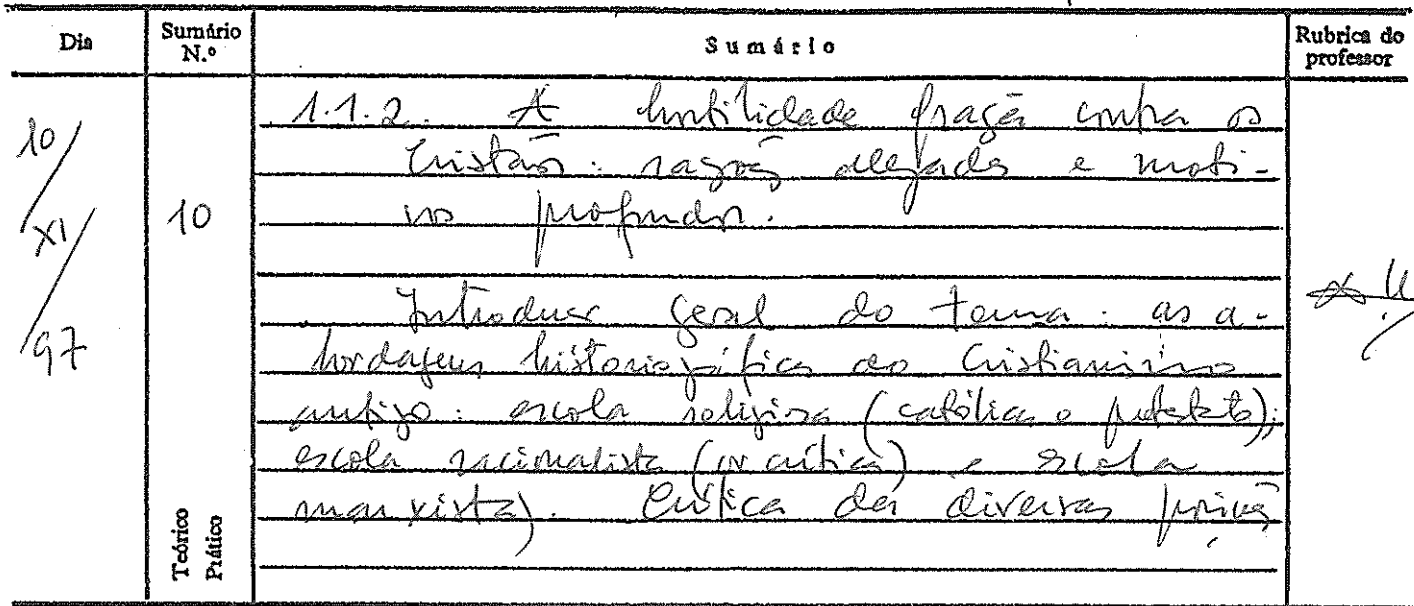 Dia
Sumário N.º
Sumário
Rubrica do professor
10/XI/97
10
1.1.2. A hostilidade pagã contra os
Cristãos: razões alegadas e moti-
vos profundos.
Introdução geral do tema: as a-
bordagens historiográficas do Cristianismo
antigo: escola religiosa (católica e protestante);
escola racionalista (ou crítica) e escola
marxista). Crítica das diversas posições
Teórico
Prático